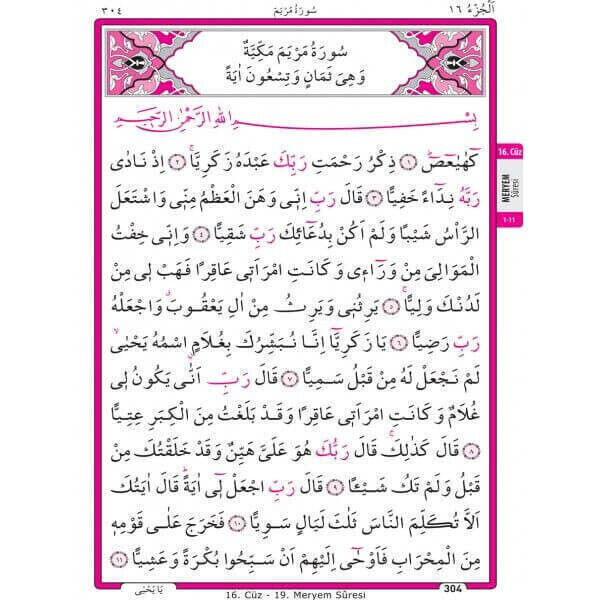 اَلْجُزْءُ ١٦
سُورَةُ مَرْيَمَ
٣٠٤
سُورَةُ مَرْيَمَ مَكِّيَّةٌ
وَهِىَ ثَمَانٍ وَتِسْعُونَ اٰيَةً
بِسْمِ اللّٰهِ الرَّحْمٰنِ الرَّحِيمِ
كٓهٰيٰعٓصٓ ﴿١﴾ ذِكْرُ رَحْمَتِ رَبِّكَ عَبْدَهُ زَكَرِيَّاۚ ﴿٢﴾ اِذْ نَادٰى
رَبَّهُ نِدَٓاءً خَفِيًّا ﴿٣﴾ قَالَ رَبِّ اِنّٖى وَهَنَ الْعَظْمُ مِنّٖى وَاشْتَعَلَ
الرَّأْسُ شَيْبًا وَلَمْ اَكُنْ بِدُعَٓائِكَ رَبِّ شَقِيًّا ﴿٤﴾ وَاِنّٖى خِفْتُ
الْمَوَالِىَ مِنْ وَرَٓاءٖى وَكَانَتِ امْرَاَتٖى عَاقِرًا فَهَبْ لٖى مِنْ
لَدُنْكَ وَلِيًّاۙ ﴿٥﴾ يَرِثُنٖى وَيَرِثُ مِنْ اٰلِ يَعْقُوبَ وَاجْعَلْهُ
رَبِّ رَضِيًّا ﴿٦﴾ يَا زَكَرِيَّٓا اِنَّا نُبَشِّرُكَ بِغُلَامٍ اسْمُهُ يَحْيٰىۙ
لَمْ نَجْعَلْ لَهُ مِنْ قَبْلُ سَمِيًّا ﴿٧﴾ قَالَ رَبِّ اَنّٰى يَكُونُ لٖى
غُلَامٌ وَكَانَتِ امْرَاَتٖى عَاقِرًا وَقَدْ بَلَغْتُ مِنَ الْكِبَرِ عِتِيًّا
﴿٨﴾ قَالَ كَذٰلِكَۚ قَالَ رَبُّكَ هُوَ عَلَىَّ هَيِّنٌ وَقَدْ خَلَقْتُكَ مِنْ
قَبْلُ وَلَمْ تَكُ شَيْـًٔا ﴿٩﴾ قَالَ رَبِّ اجْعَلْ لٖٓى اٰيَةًۜ قَالَ اٰيَتُكَ
اَلَّا تُكَلِّمَ النَّاسَ ثَلٰثَ لَيَالٍ سَوِيًّا ﴿١٠﴾ فَخَرَجَ عَلٰى قَوْمِهٖ
مِنَ الْمِحْرَابِ فَاَوْحٰٓى اِلَيْهِمْ اَنْ سَبِّحُوا بُكْرَةً وَعَشِيًّا ﴿١١﴾
16. Cüz
MERYEM
Sûresi
1-11
يَا يَحْيٰى
16. Cüz - 19. Meryem Sûresi
304